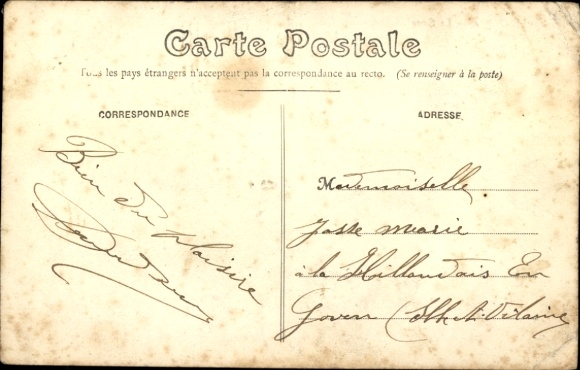 Carte Postale
Tous les pays étrangers n'acceptent pas la correspondance au recto. (Se renseigner à la poste)
CORRESPONDANCE
ADRESSE
Bien du plaisire
Mademoiselle
Marie
à la en
Goven (Ille et Vilaine)